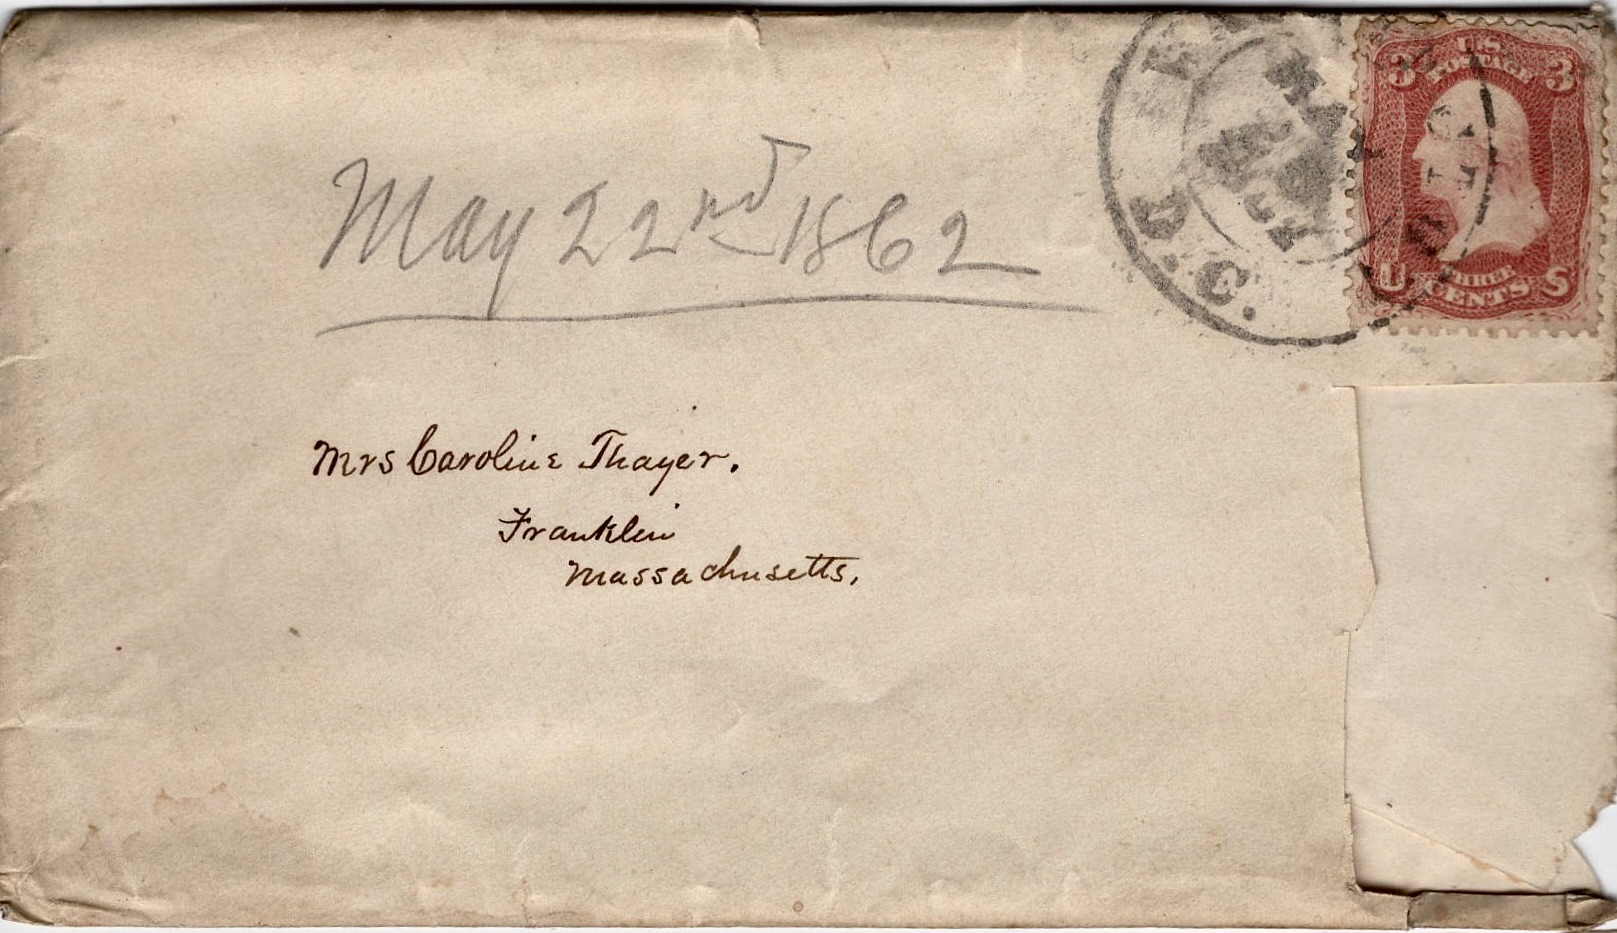 U.S.
POSTAGE
3 3
May 22nd 1862
U THREE S
CENTS
Mrs Caroline Thayer.
Franklin
Massachusetts,